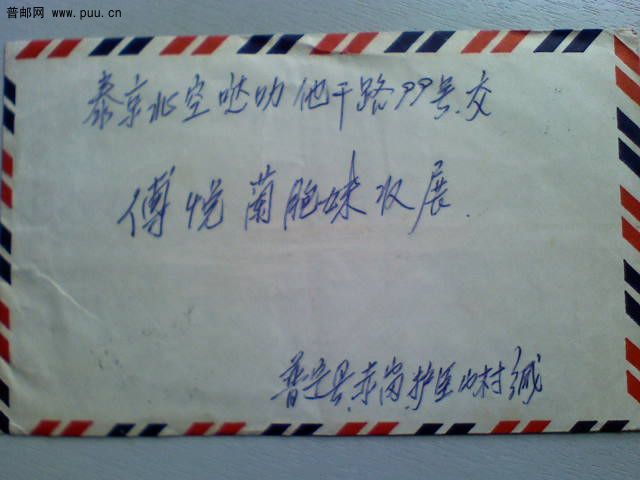 普邮网 www.puu.cn
泰京水空哒叻他干路99号.交
傅悦菌胞妹收展.
普宁县.赤岗.护堡山村缄